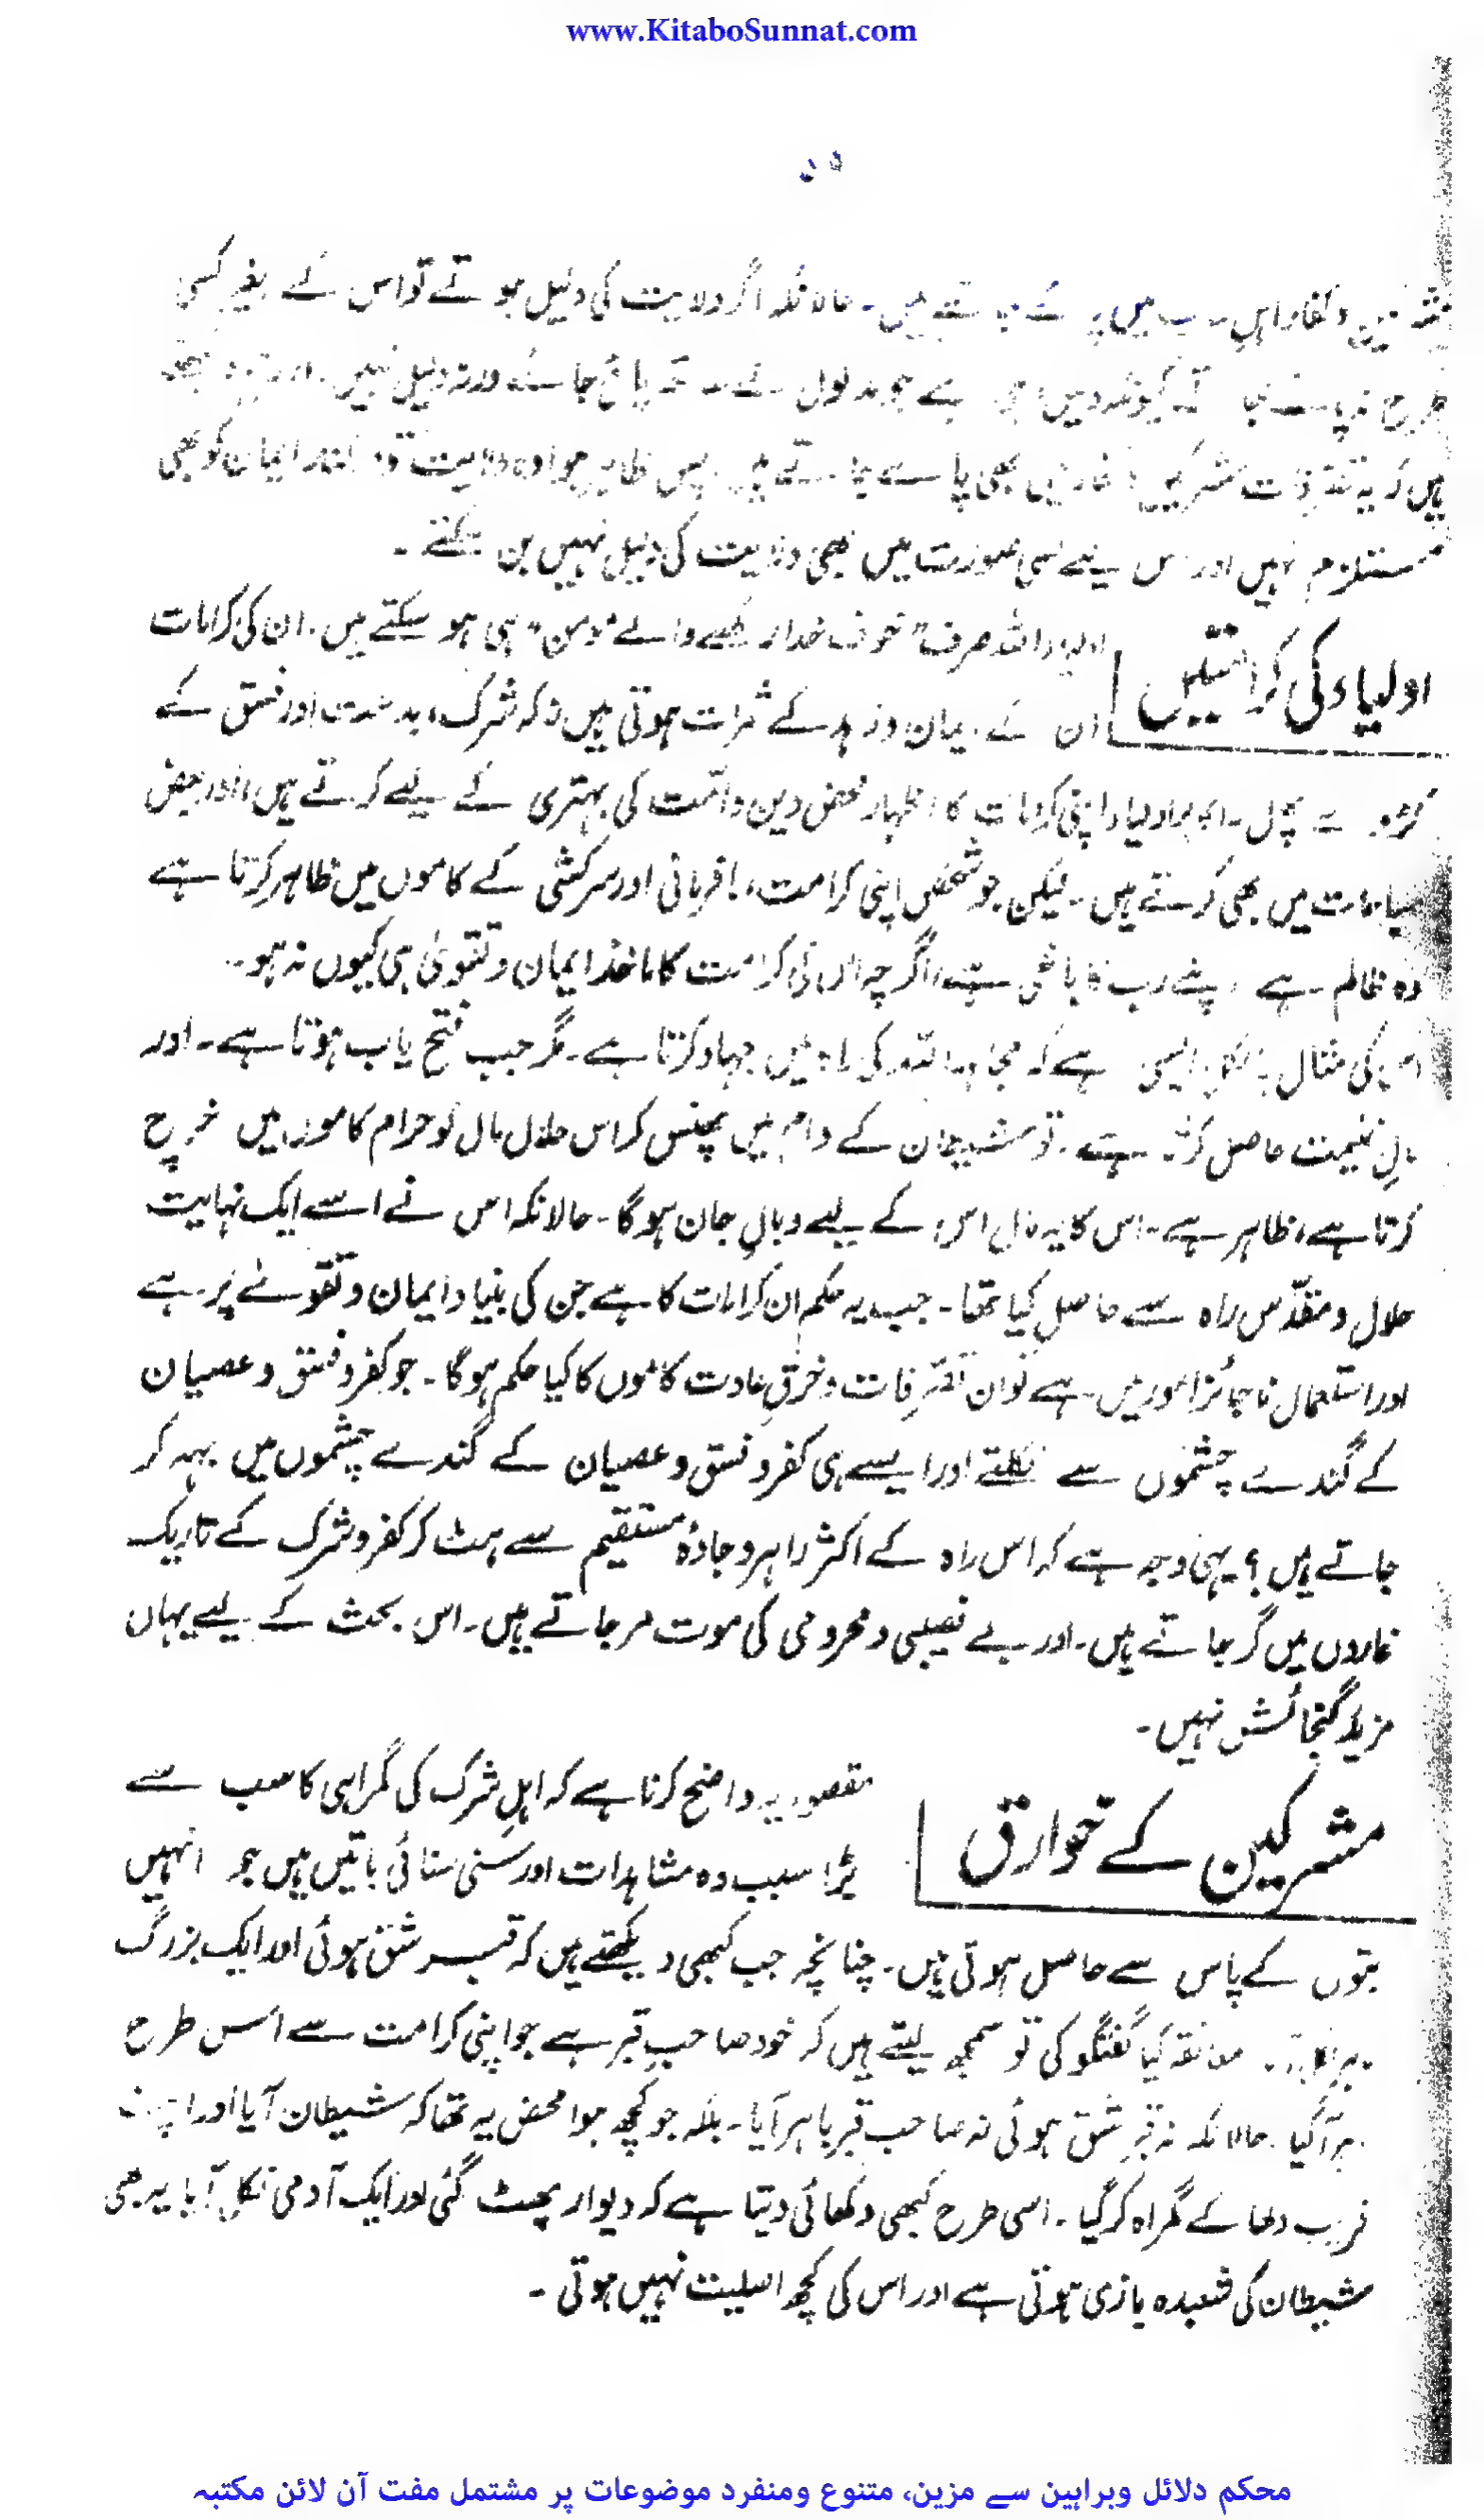 www.KitaboSunnat.com
میں۔ حالانکہ اگر ولایت کی دلیل ہوتے تو اس کے بغیر کسی
طرح نہ پائے جا
مشرکین بھی پائے جاتے ہیں۔ پس ظاہر ہوا وہ ولایت تو ایمان کو بھی
مستلزم نہیں اور اس لیے کسی صورت میں بھی ولایت کی دلیل نہیں بن سکتے۔
اولیاء کی کرامتیں
اولیاء اللہ صرف "خوف خدا رکھنے والے مومن" ہی ہو سکتے ہیں۔ ان کی کرامات
ان کے ایمان و زہد کے ثمرات ہوتی ہیں نہ کہ شرک، بدعت اور فسق کے
کڑوے پھل۔ اکابر اولیاء اپنی کرامات کا اظہار محض دین و امت کی بہتری کے لیے کرتے ہیں، اور بعض
مباحات میں بھی کرتے ہیں۔ لیکن جو شخص اپنی کرامت، نافرمانی اور سرکشی کے کاموں میں ظاہر کرتا ہے
وہ ظالم ہے، اپنے رب کا باغی ہے، اگرچہ اس کی کرامت کا ماخذ ایمان و تقویٰ ہی کیوں نہ ہو۔
اس کی مثال بالکل ایسی ہے کہ مجاہد اللہ کی راہ میں جہاد کرتا ہے۔ مگر جب فتح یاب ہوتا ہے۔ اور
مالِ غنیمت حاصل کرتا ہے۔ تو شیطان کے دام میں پھنس کر اس حلال مال کو حرام کاموں میں خرچ
کرتا ہے، ظاہر ہے۔ اس کا یہ مال اس کے لیے وبالِ جان ہوگا۔ حالانکہ اس نے اسے ایک نہایت
حلال و مقدّس راہ سے حاصل کیا تھا۔ جب یہ حکم ان کرامات کا ہے جن کی بنیاد ایمان و تقوےٰ پر ہے
اور استعمال ناجائز امور میں ہے تو ان تصّرفات و خرقِ عادت کاموں کا کیا حکم ہوگا۔ جو کفر و فسق و عصیان
کے گندے چشموں سے نکلتے اور ایسے ہی کفر و فسق و عصیان کے گندے چشموں میں بہہ کر
جاتے ہیں؟ یہی وجہ ہے کہ اس راہ کے اکثر راہرو جادۂ مستقیم سے ہٹ کر کفر و شرک کے تاریک
غاروں میں گر جاتے ہیں۔ اور بے نصیبی و محرومی کی موت مر جاتے ہیں۔ اس بحث کے لیے یہاں
مزید گنجائش نہیں۔
مشرکین کے خوارق
مقصود یہ واضح کرنا ہے کہ اہلِ شرک کی گمراہی کا سب سے
بڑا سبب وہ مشاہدات اور سنی سنائی باتیں ہیں جو انہیں
بتوں کے پاس سے حاصل ہوتی ہیں۔ چنانچہ جب کبھی دیکھتے ہیں کہ قبر شق ہوئی اور ایک بزرگ
معانقہ کیا گفتگو کی تو سمجھ لیتے ہیں کہ خود صاحبِ قبر ہے جو اپنی کرامت سے اس طرح
آ گیا۔ حالانکہ نہ قبر شق ہوئی نہ صاحب قبر باہر آیا۔ بلکہ جو کچھ ہوا محض یہ تھا کہ شیطان آیا اور اپنے
فریب دکھا کے گمراہ کر گیا۔ اسی طرح کبھی دکھائی دیتا ہے کہ دیوار پھٹ گئی اور ایک آدمی نکل آیا یہ بھی
شیطان کی شعبدہ بازی ہوتی ہے اور اس کی کچھ اصلیت نہیں ہوتی۔
محکم دلائل وبراہین سے مزین، متنوع ومنفرد موضوعات پر مشتمل مفت آن لائن مکتبہ